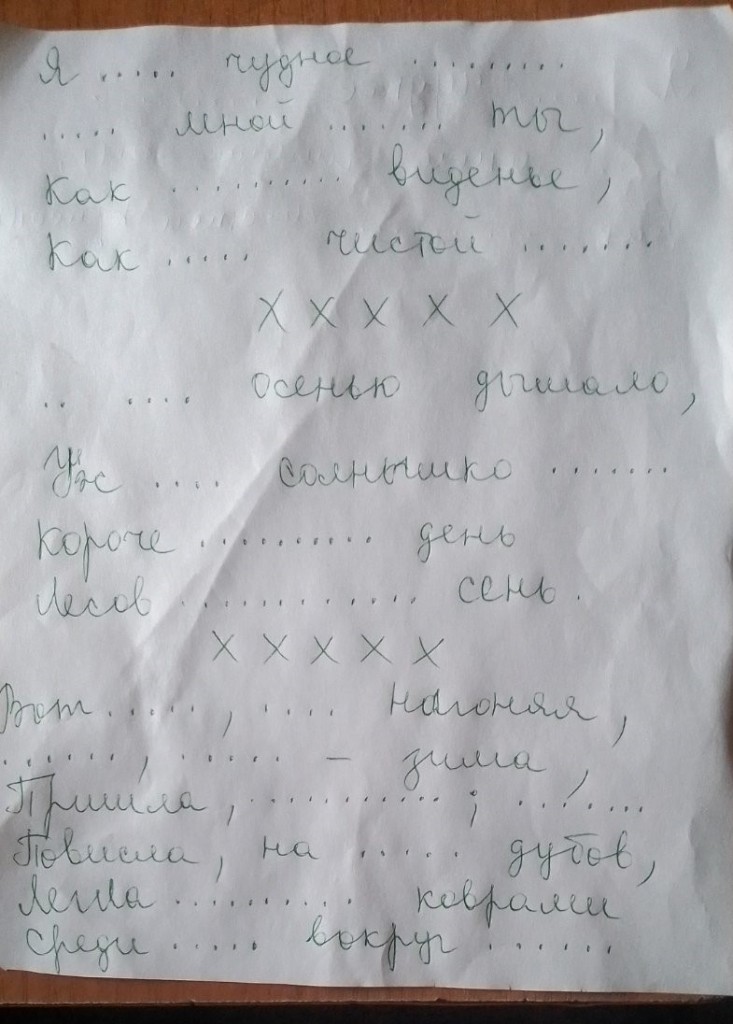 Я ..... чудное .........
..... мной ....... ты,
Как .......... виденье,
Как ..... чистой .......
X X X X X
.. .... осенью дышало,
Уж .... солнышко .......
Короче .......... день
Лесов ............. сень.
X X X X X
Вот ....., .... нагоняя,
......, ..... – зима,
Пришла, ...........; .......
Повисла, на ..... дубов,
Легла .......... коврами
Среди ..... вокруг .......